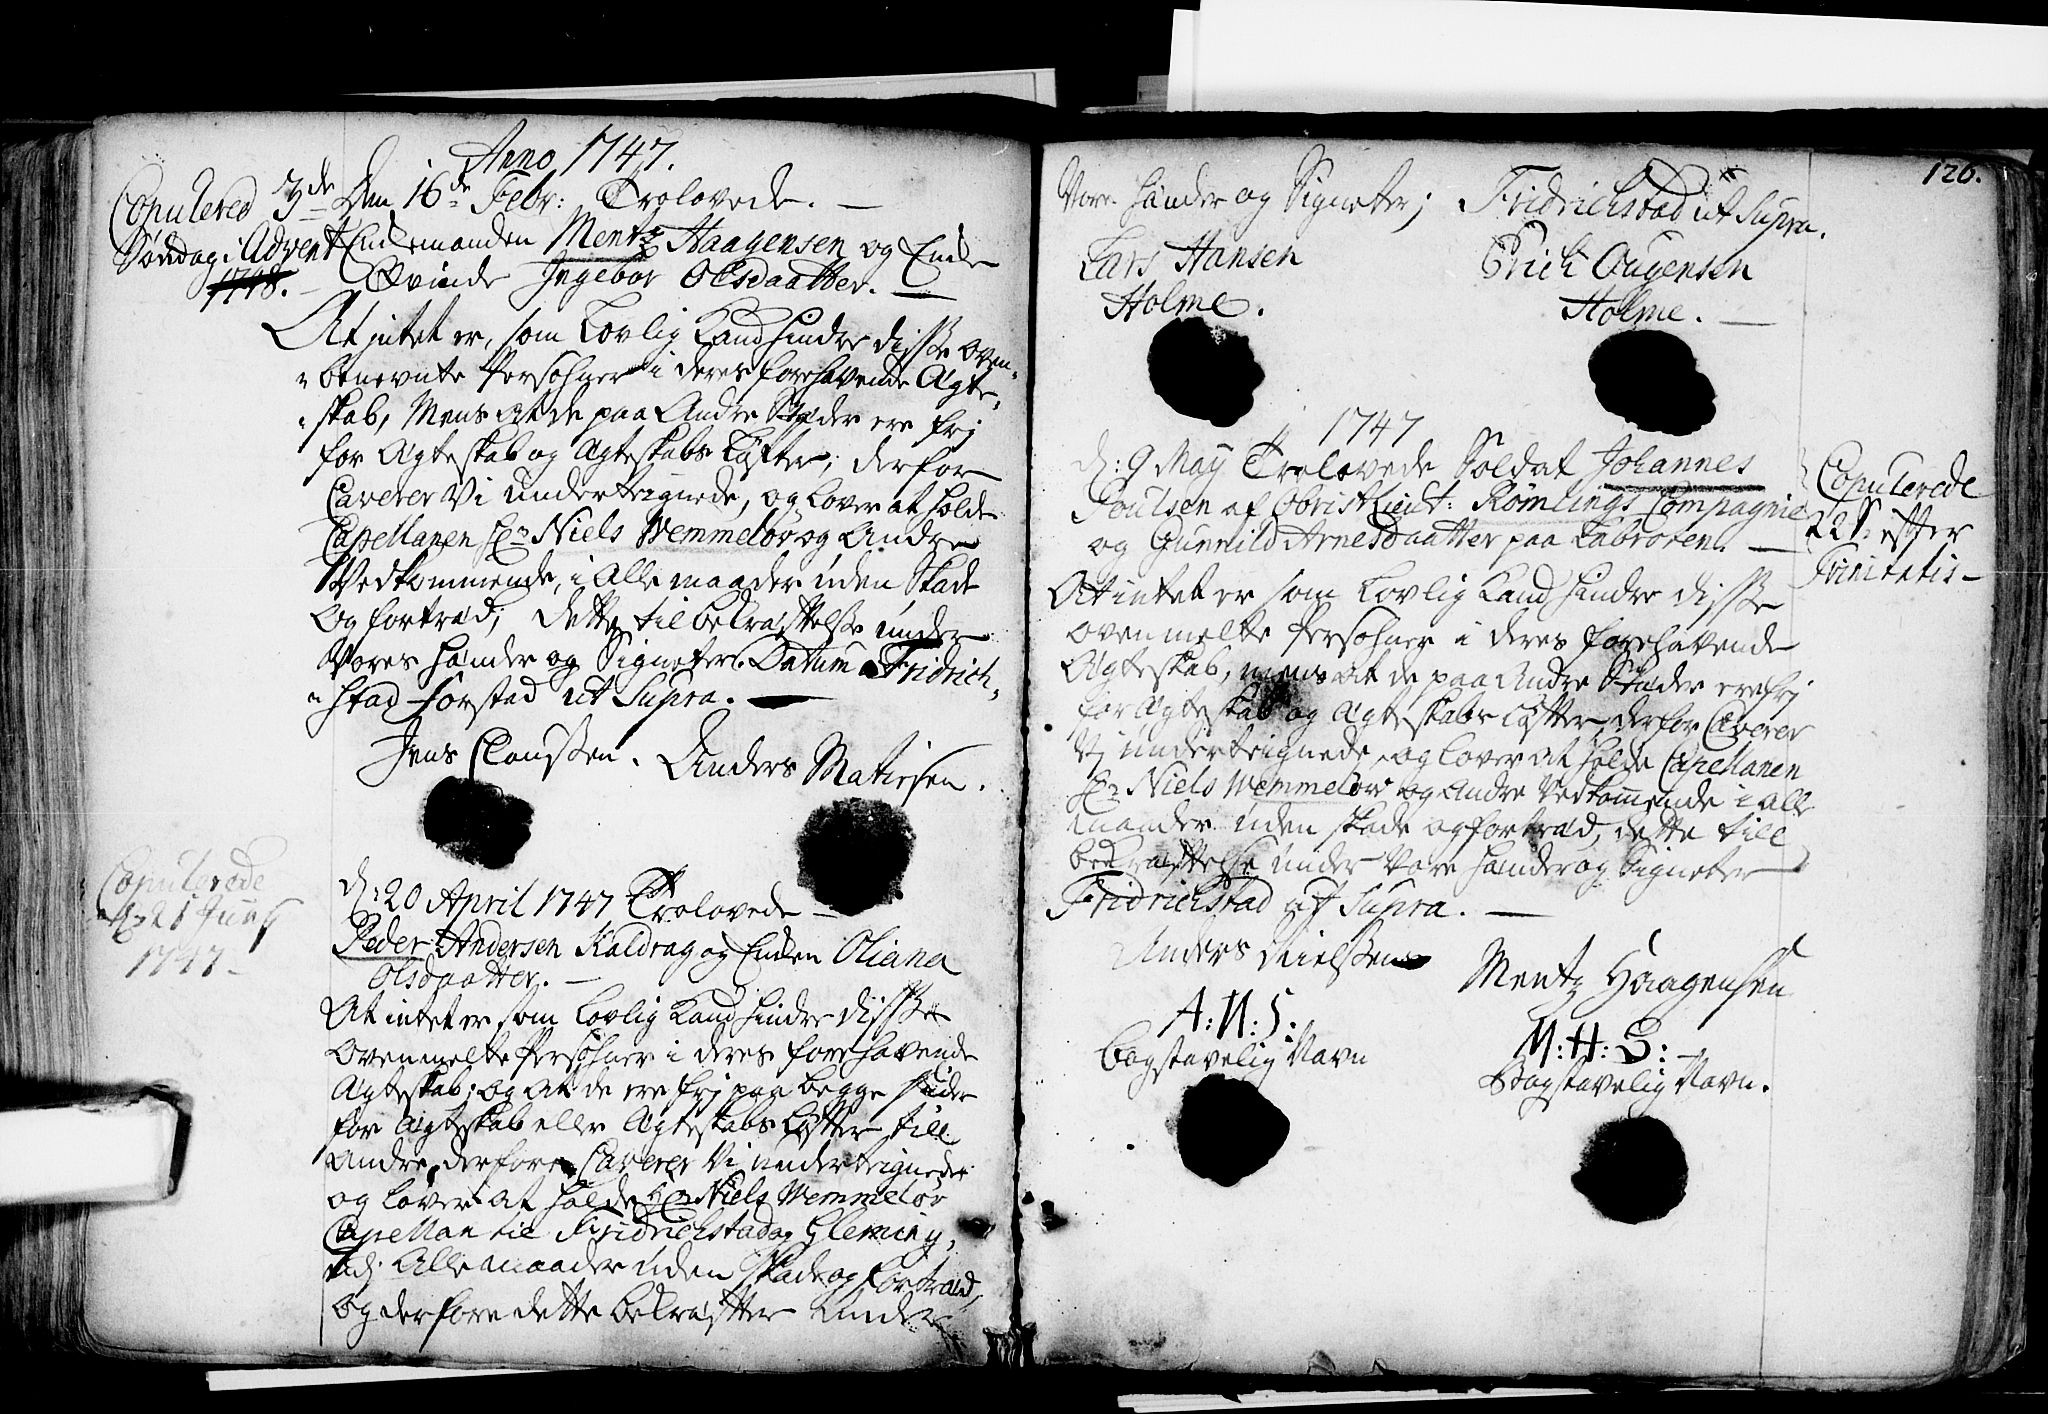 Anno 1747.
Copulered 3de
Søndag i Advent
1748.
Den 16de Febr: Trolovede. —
Enckemanden Mentz Haagensen og Encke
Qvinde Ingebor Olsdaatter. —
At intet er, som Lovlig Kand hindre disse oven-
-benevnte Persohner i deres forehavende Ægte-
-skab, Mens at de paa Andre Stæder ere frj
for Ægteskab og Ægteskabs Løfter, derfor
Caverer Vi underteignede, og lover at holde
Capellanen Hr Niels Wemmeløv og Andre
Vedkommende, i Alle maader uden Skade
og fortræd, dette til bekræftelse under
Vores hænder og Signeter. Datum Fridrich-
-stad forstad ut Supra. —
Jens Claussen. Anders Matiesen.
Copulerede
d: 21 Junij
1747 —
d: 20 April 1747 Trolovede —
Peder Andersen Kaldrag og Encken Oliana
Olsdaatter. —
At intet er som Lovlig Kand hindre disse
Ovenmelte Persohner i deres forehavende
Ægteskab; og at de ere frj paa begge sider
for Ægteskab eller Ægteskabs Løfter till
Andre, derfore Caverer Vi underteignede
og lover at holde Hr Niels Wemmeløv
Capellan til Fridrichstad og Glemmig,
udj Alle maader uden Skade og fortræd,
og derfore dette bekræfter under
126.
Vore hænder og Signeter; Fridrichstad ut Supra.
Lars Hansen Erich Ougensen
Holme. Holme. —
1747
d: 9 May Trolovede Soldat Johannes
Poulsen af Obristlieut: Rømlings Compagnie
og Gunnild Arnesdaatter paa Labroren. —
Copulerede
22 S: efter
Trinitatis —
At intet er som Lovlig Kand hindre disse
ovenmelte Persohner i deres forehavende
Ægteskab, mens at de paa Andre Stæder ere frj
for Ægteskab og Ægteskabs Løfter, derfor Caverer
Vj underteignede, og lover at holde Capellanen
Hr Niels Wemmeløv og Andre Vedkommende i alle
maader uden skade og fortræd, dette till
bekræftelse under Vore hænder og Signeter
Fridrichstad ut Supra. —
Anders Nielssen Mentz Haagensen
A: N: S: M: H: S: —
bogstavelig Navn Bogstavelig Navn.